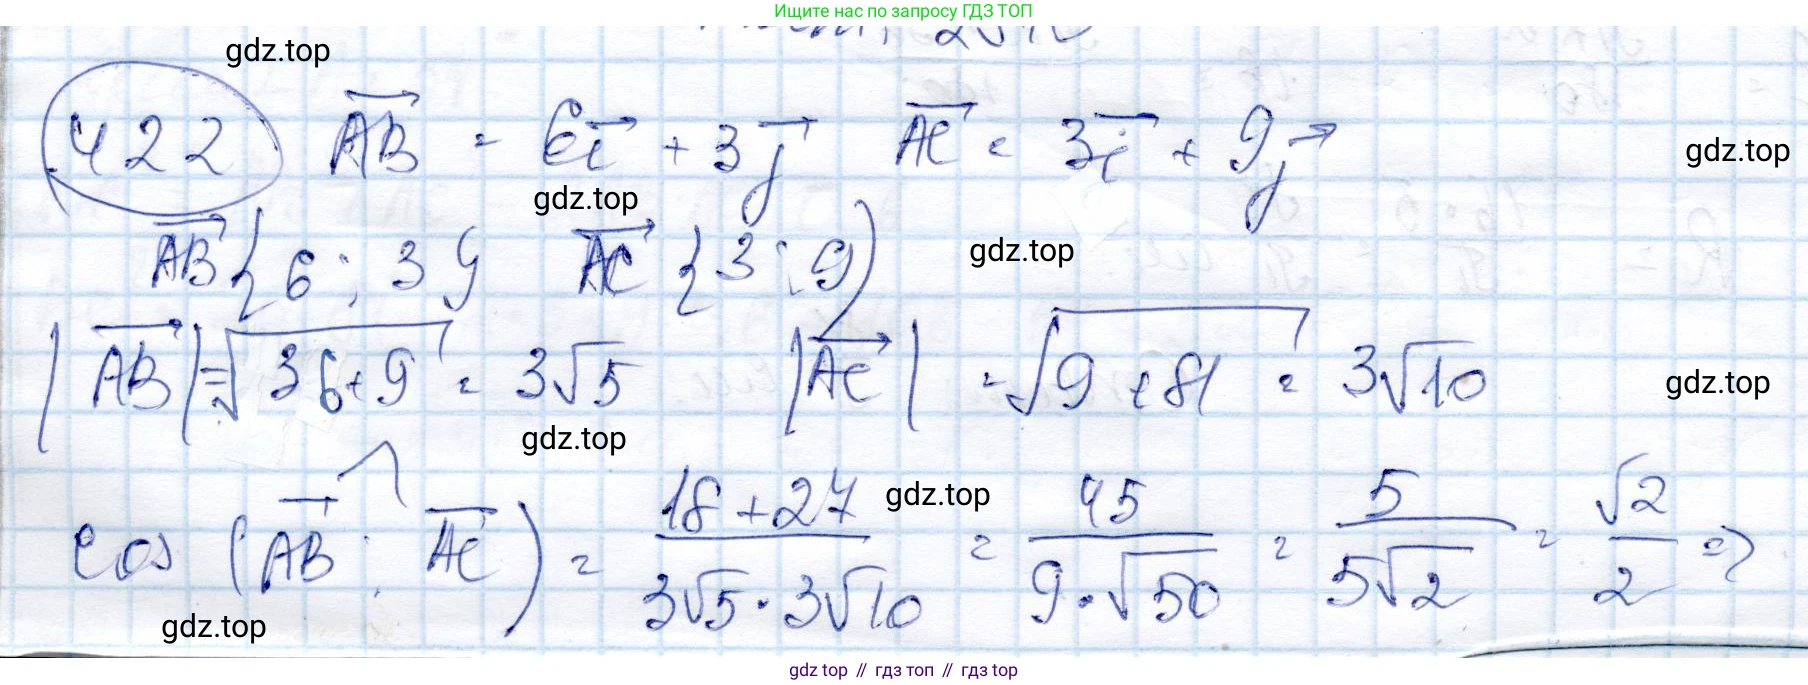 Ищите нас по запросу ГДЗ ТОП
gdz.top
422 AB = 6i + 3j AC = 3i + 9j
gdz.top
gdz.top
AB {6; 3} AC {3; 9}
gdz.top
|AB| = √36+9 = 3√5 |AC| = √9+81 = 3√10
gdz.top
gdz.top
gdz.top
cos (AB; AC) = 18+27 / 3√5·3√10 = 45 / 9·√50 = 5 / 5√2 = √2 / 2 =>
gdz.top
gdz top // гдз топ // гдз top